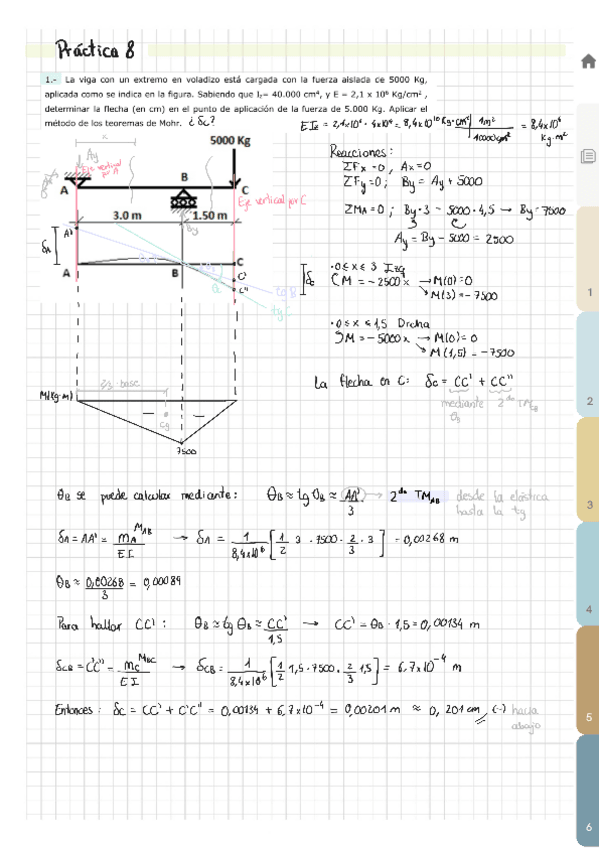 Práctica 8
1.- La viga con un extremo en voladizo está cargada con la fuerza aislada de 5000 Kg,
aplicada como se indica en la figura. Sabiendo que Iz= 40.000 cm⁴, y E = 2,1 x 10⁶ Kg/cm² ,
determinar la flecha (en cm) en el punto de aplicación de la fuerza de 5.000 Kg. Aplicar el
método de los teoremas de Mohr. ¿δc?
1m²
10000cm²
= 8,4x10⁶
Kg·m²
x
5000 Kg
Ay
Eje vertical
por A
A
B
C
Eje vertical por C
3.0 m
1.50 m
By
A'
δA
A
B
C
C'
C''
tg B
tg C
Reacciones:
ΣFx = 0, Ax = 0
ΣFy = 0; By = Ay + 5000
ΣMA = 0; By·3 - 5000·4,5 → By = 7500
Ay = By - 5000 = 2500
·0≤x≤3 Izq
M = -2500x → M(0)=0
→ M(3) = -7500
δc
·0≤x≤1,5 Drcha
M = -5000x → M(0)=0
→ M(1,5) = -7500
La flecha en C: δc = CC' + CC''
mediante 2ᵈᵒ TMCB
θB
2/3 · base
M(Kg·m)
cg
7500
θB se puede calcular mediante: θB ≈ tg θB ≈ AA'/3 → 2ᵈᵒ TMAB desde la elástica
hasta la tg
δA = AA' = mA^MAB / EI → δA = 1/8,4x10⁶ [1/2 3 · 7500 · 2/3 · 3] = 0,00268 m
θB ≈ 0,00268/3 = 0,00089
Para hallar CC': θB ≈ tg θB ≈ CC'/1,5 → CC' = θB · 1,5 = 0,00134 m
δCB = C'C'' = mC^MBC / EI → δCB = 1/8,4x10⁶ [1/2 1,5 · 7500 · 2/3 1,5] = 6,7x10⁻⁴ m
Entonces: δc = CC' + C'C'' = 0,00134 + 6,7x10⁻⁴ = 0,00201 m ≈ 0,201 cm, (-) hacia
abajo
1
2
3
4
5
6